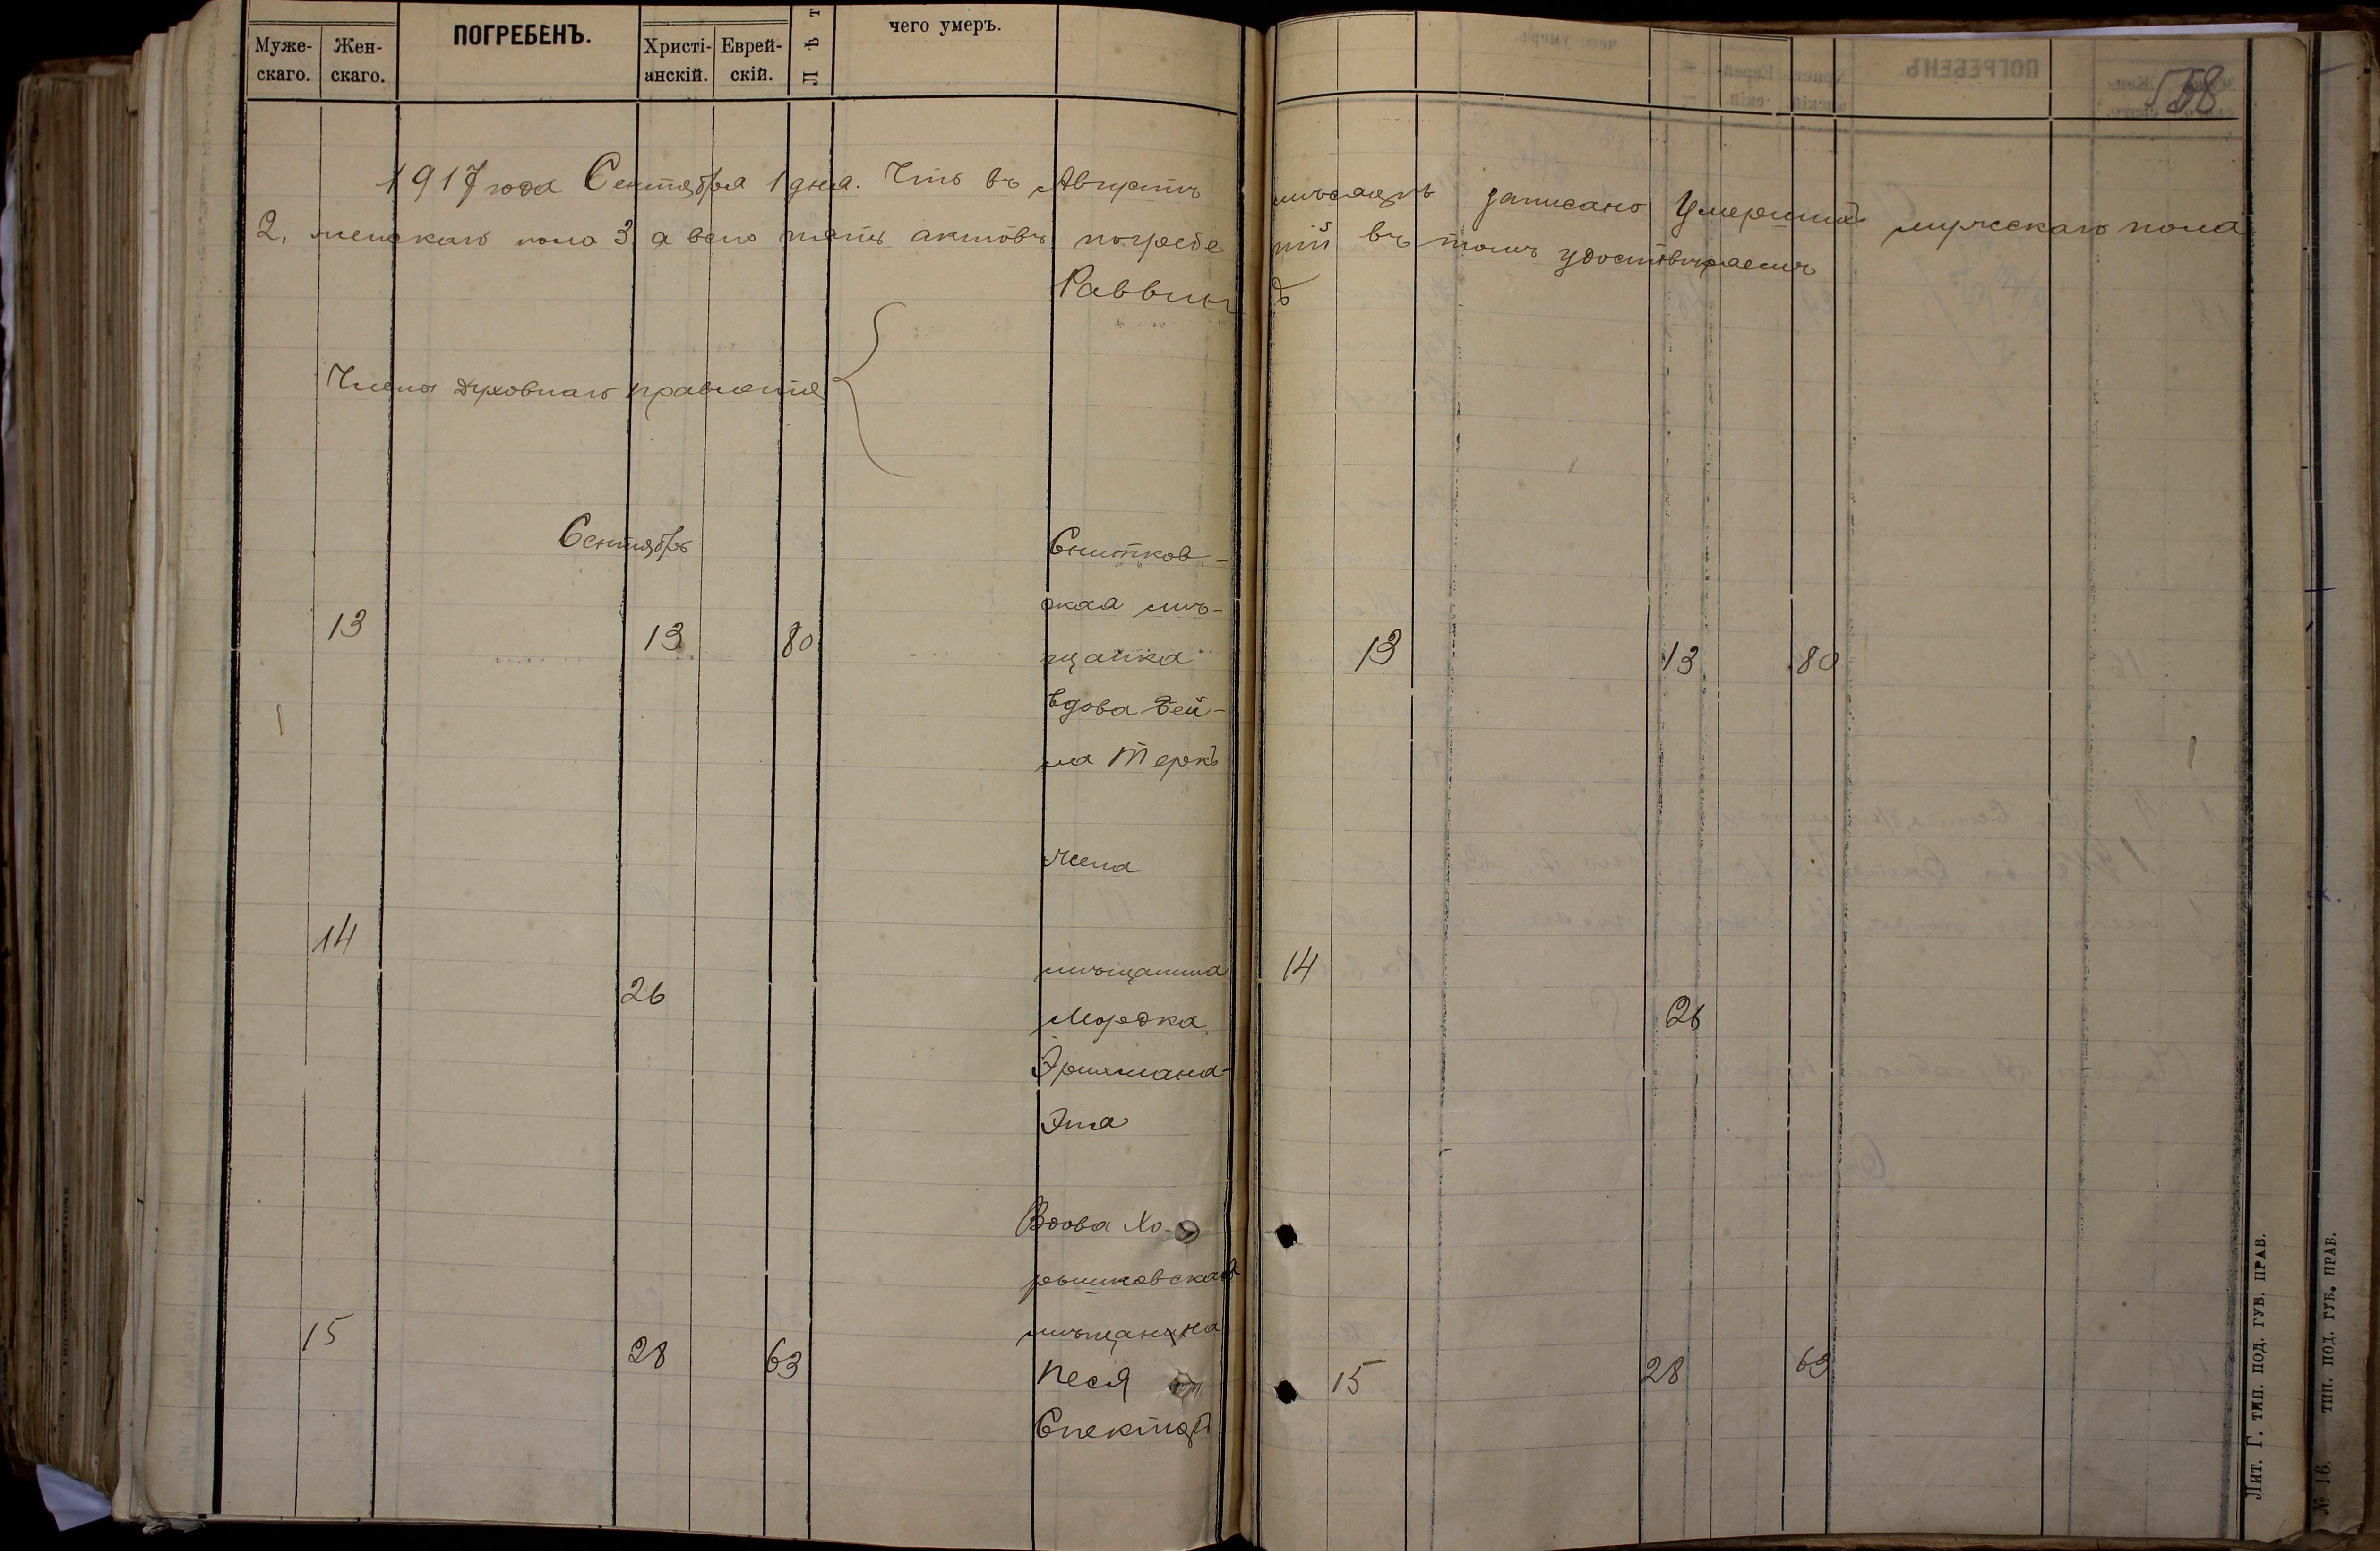 Муже- Жен- ПОГРЕБЕНЪ. Христі- Еврей- Лѣт чего умеръ.
скаго. скаго. анскій. скій.
558
1917 года Сентября 1 дня. Что въ Августѣ мѣсяцѣ записано Умершихъ мужескаго пола
2, женскаго пола 3, а всего пять актовъ погребеній въ томъ удостовѣряемъ
Раввинъ
Члены духовнаго правленія
Сентябрь
Снитков-
ская мѣ-
13 13 80 щанка 13 13 80
вдова Бей-
ла Теркъ
1 1
жена
14 мѣщанина 14
26 Мордка 26
Эта
Вдова Хо-
рышковская
мѣщанина
15 28 63 Песя 15 28 63
Спекторъ
Лит. Г. тип. под. губ. прав.
№ 16. тип. под. губ. прав.